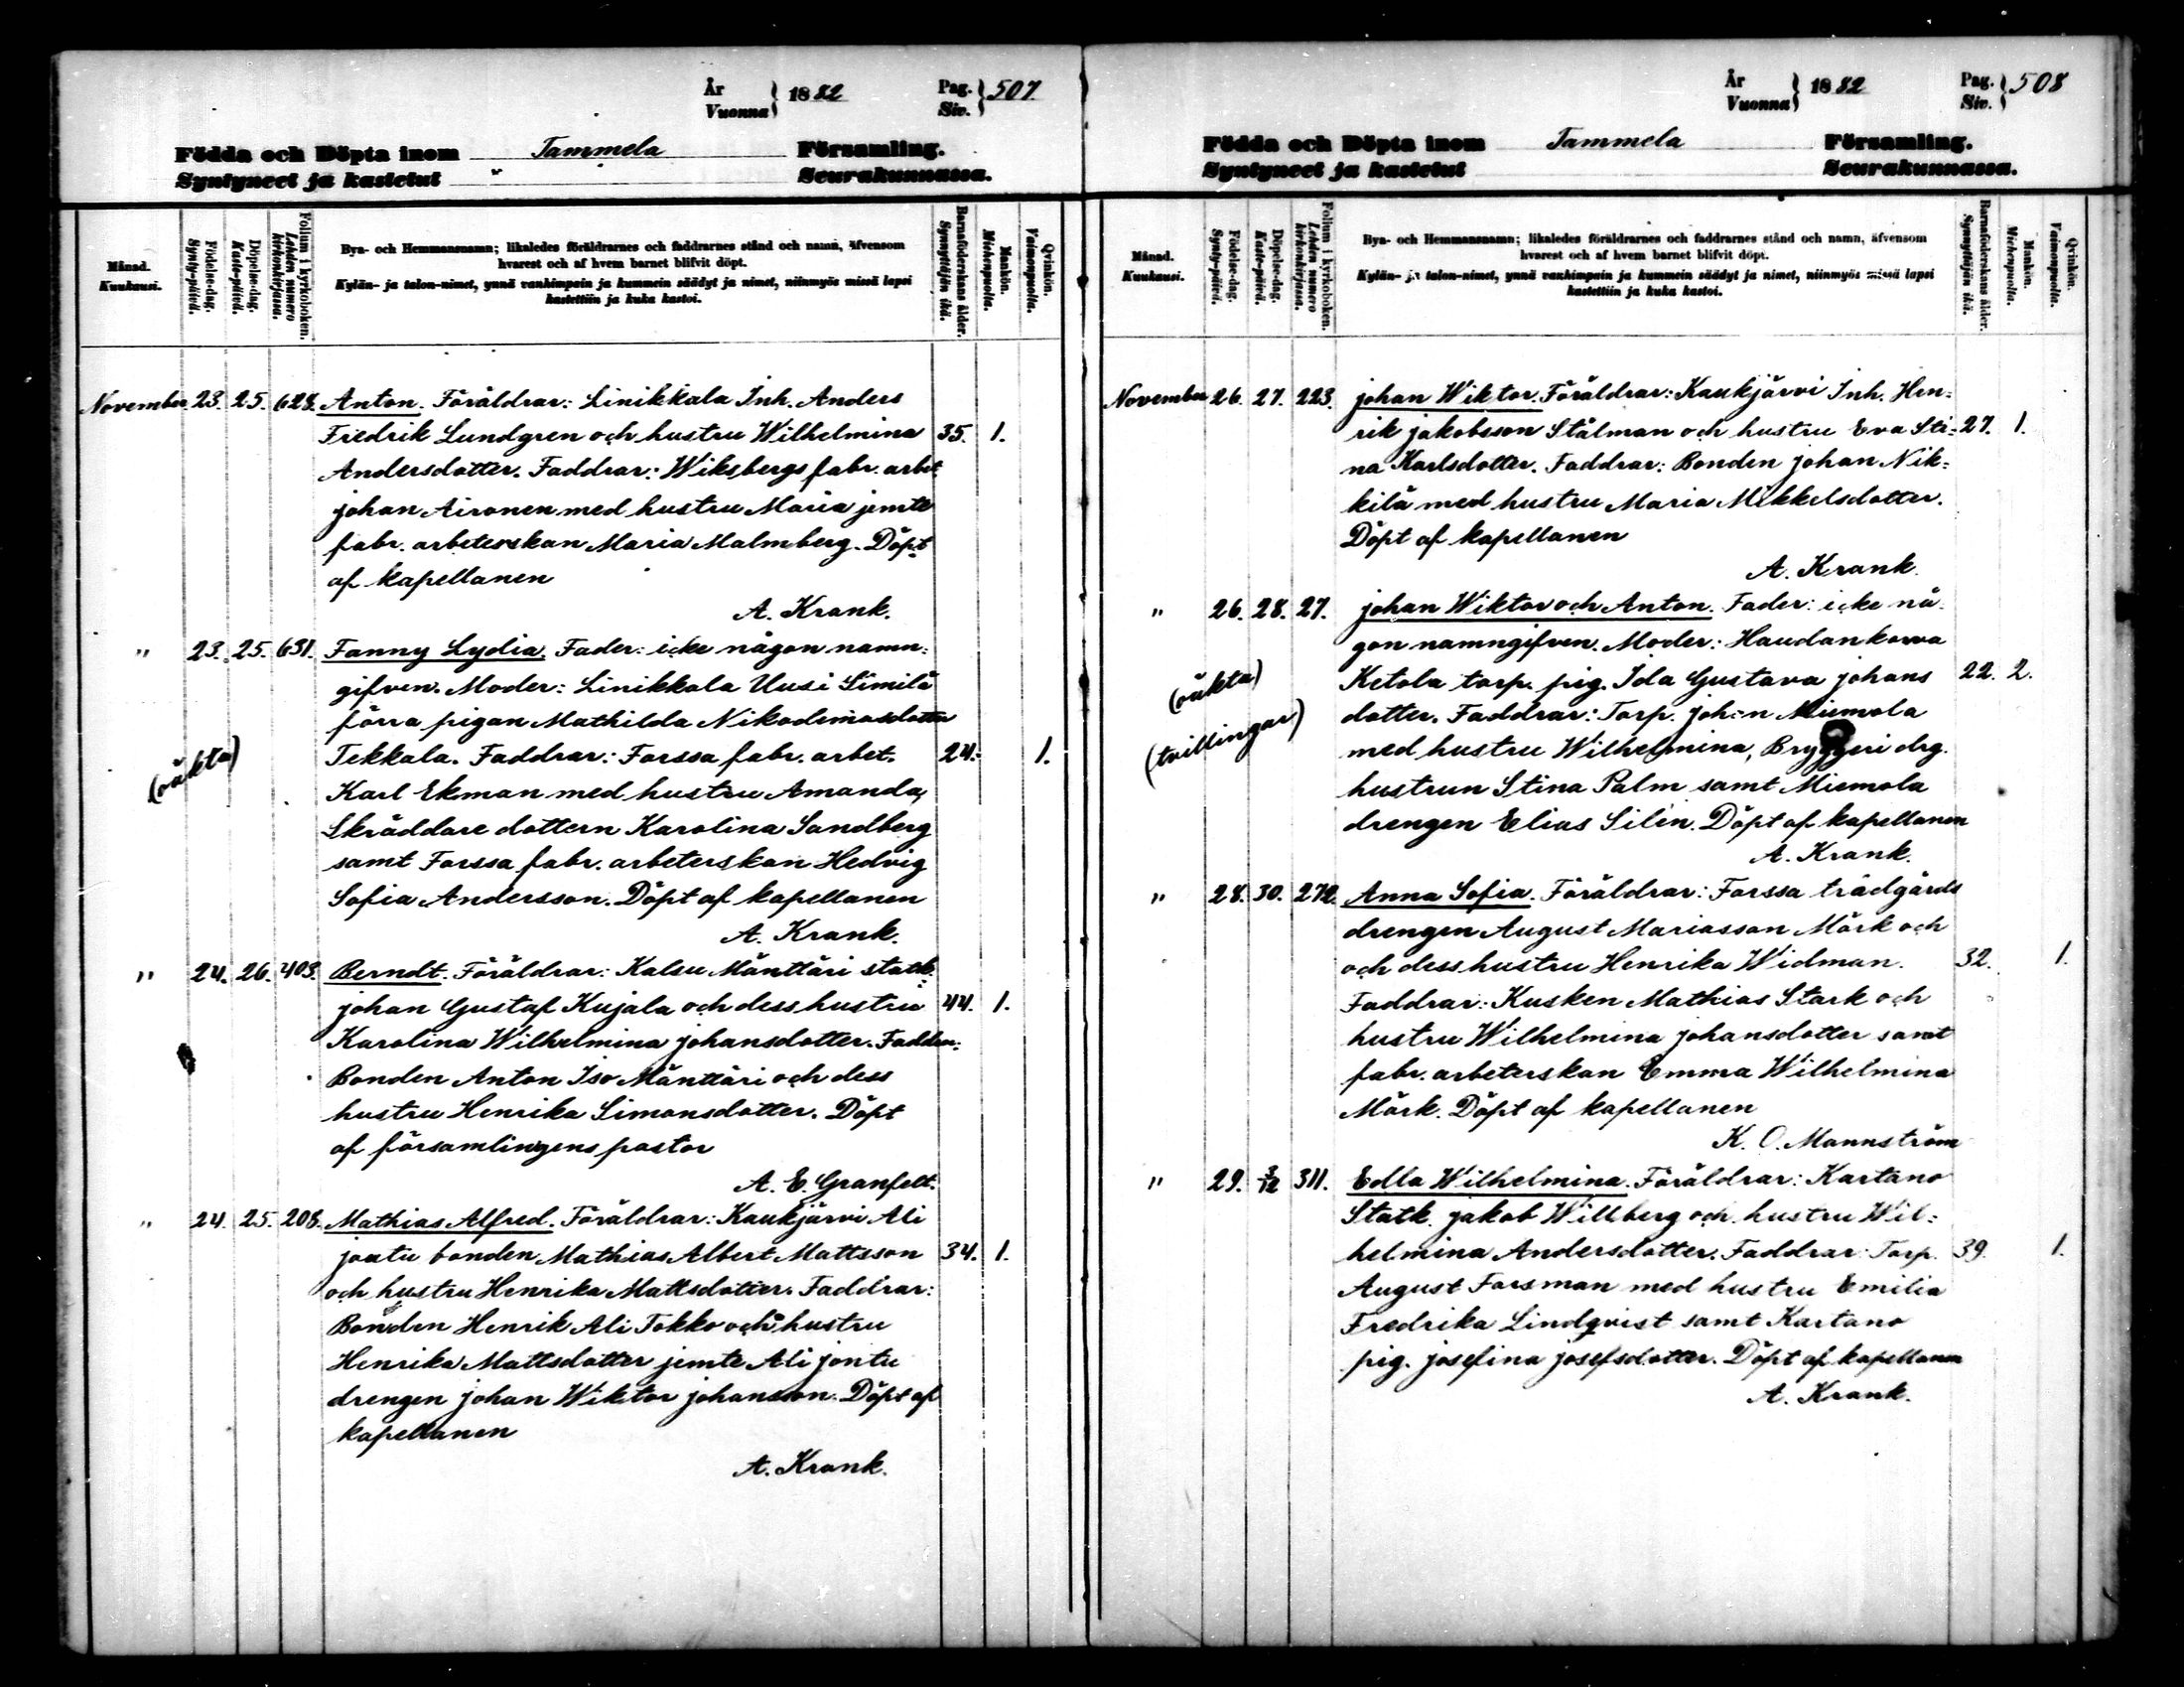 År
Vuonna } 1882 Pag.
Siv. } 507
Födda och Döpta inom Tammela Församling.
Syntyneet ja kastetut " Seurakunnassa.
Månad.
Kuukausi.
Födelse-dag.
Synty-päivä.
Döpelse-dag.
Kaste-päivä.
Folium i kyrkoboken.
Lehden numero
kirkonkirjassa.
Bya- och Hemmansnamn; likaledes föräldrarnes och faddrarnes stånd och namn, äfvensom
hvarest och af hvem barnet blifvit döpt.
Kylän- ja talon-nimet, ynnä vanhimpain ja kummein säädyt ja nimet, niinmyös missä lapsi
kastettiin ja kuka kastoi.
Barnaföderskans ålder.
Synnyttäjän ikä.
Mankön.
Miehenpuolta.
Qvinkön.
Vaimonpuolta.
November 23. 25. 628. Anton. Föräldrar: Linikkala Inh. Anders
Fredrik Lundgren och hustru Wilhelmina 35. 1.
Andersdotter. Faddrar: Wiksbergs fabr. arbet.
johan Aironen med hustru Maria jemte
fabr. arbeterskan Maria Malmberg. Döpt
af kapellanen
A. Krank.
" 23. 25. 631. Fanny Lydia. Fader: icke någon namn=
gifven. Moder: Linikkala Uusi Simila
förra pigan Mathilda Nikodemusdotter
(oäkta) Tekkala. Faddrar: Forssa fabr. arbet. 24. 1.
Karl Ekman med hustru Amanda,
Skräddare dottern Karolina Sandberg
samt Forssa fabr. arbeterskan Hedvig
Sofia Andersson. Döpt af kapellanen
A. Krank.
" 24. 26. 403. Berndt. Föräldrar: Kalsu Mänttäri statk.
johan Gustaf Kujala och dess hustru 44. 1.
Karolina Wilhelmina johansdotter. Faddrar:
Bonden Anton Iso Mänttäri och dess
hustru Henrika Simonsdotter. Döpt
af församlingens pastor
A. E. Granfelt.
" 24. 25. 208. Mathias Alfred. Föräldrar: Kaukjärvi Ali
jontu bonden Mathias Albert Mattsson 34. 1.
och hustru Henrika Mattsdotter. Faddrar:
Bonden Henrik Ali Tokko och hustru
Henrika Mattsdotter jemte Ali jontu
drengen johan Wiktor johansson. Döpt af
kapellanen
A. Krank.
År
Vuonna } 1882 Pag.
Siv. } 508
Födda och Döpta inom Tammela Församling.
Syntyneet ja kastetut Seurakunnassa.
Månad.
Kuukausi.
Födelse-dag.
Synty-päivä.
Döpelse-dag.
Kaste-päivä.
Folium i kyrkoboken.
Lehden numero
kirkonkirjassa.
Bya- och Hemmansnamn; likaledes föräldrarnes och faddrarnes stånd och namn, äfvensom
hvarest och af hvem barnet blifvit döpt.
Kylän- ja talon-nimet, ynnä vanhimpain ja kummein säädyt ja nimet, niinmyös missä lapsi
kastettiin ja kuka kastoi.
Barnaföderskans ålder.
Synnyttäjän ikä.
Mankön.
Miehenpuolta.
Qvinkön.
Vaimonpuolta.
November 26. 27. 223. johan Wiktor. Föräldrar: Kaukjärvi Inh. Hen=
rik jakobsson Stålman och hustru Eva Sti= 27. 1.
na Karlsdotter. Faddrar: Bonden johan Nik=
kilä med hustru Maria Mikkelsdotter.
Döpt af kapellanen
A. Krank.
" 26. 28. 27. johan Wiktor och Anton. Fader: icke nå
gon namngifven. Moder: Haudankorva
(oäkta) Ketola torp. pig. Ida Gustava johans 22. 2.
(tvillingar) dotter. Faddrar: Torp. johan Miemola
med hustru Wilhelmina, Bryggeri drg.
hustrun Stina Palm samt Miemola
drengen Elias Silén. Döpt af kapellanen
A. Krank.
" 28. 30. 272. Anna Sofia. Föräldrar: Forssa trädgårds
drengen August Mariasson Mörk och
och dess hustru Henrika Widman. 32. 1.
Faddrar: Kusken Mathias Stark och
hustru Wilhelmina johansdotter samt
fabr. arbeterskan Emma Wilhelmina
Mörk. Döpt af kapellanen
K. O. Mannström
" 29. 3/12 311. Edla Wilhelmina. Föräldrar: Kartano
Statk. jakob Willberg och hustru Wil=
helmina Andersdotter. Faddrar: Torp. 39. 1.
August Forsman med hustru Emilia
Fredrika Lindqvist samt Kartano
pig. josefina josefsdotter. Döpt af kapellanen
A. Krank.